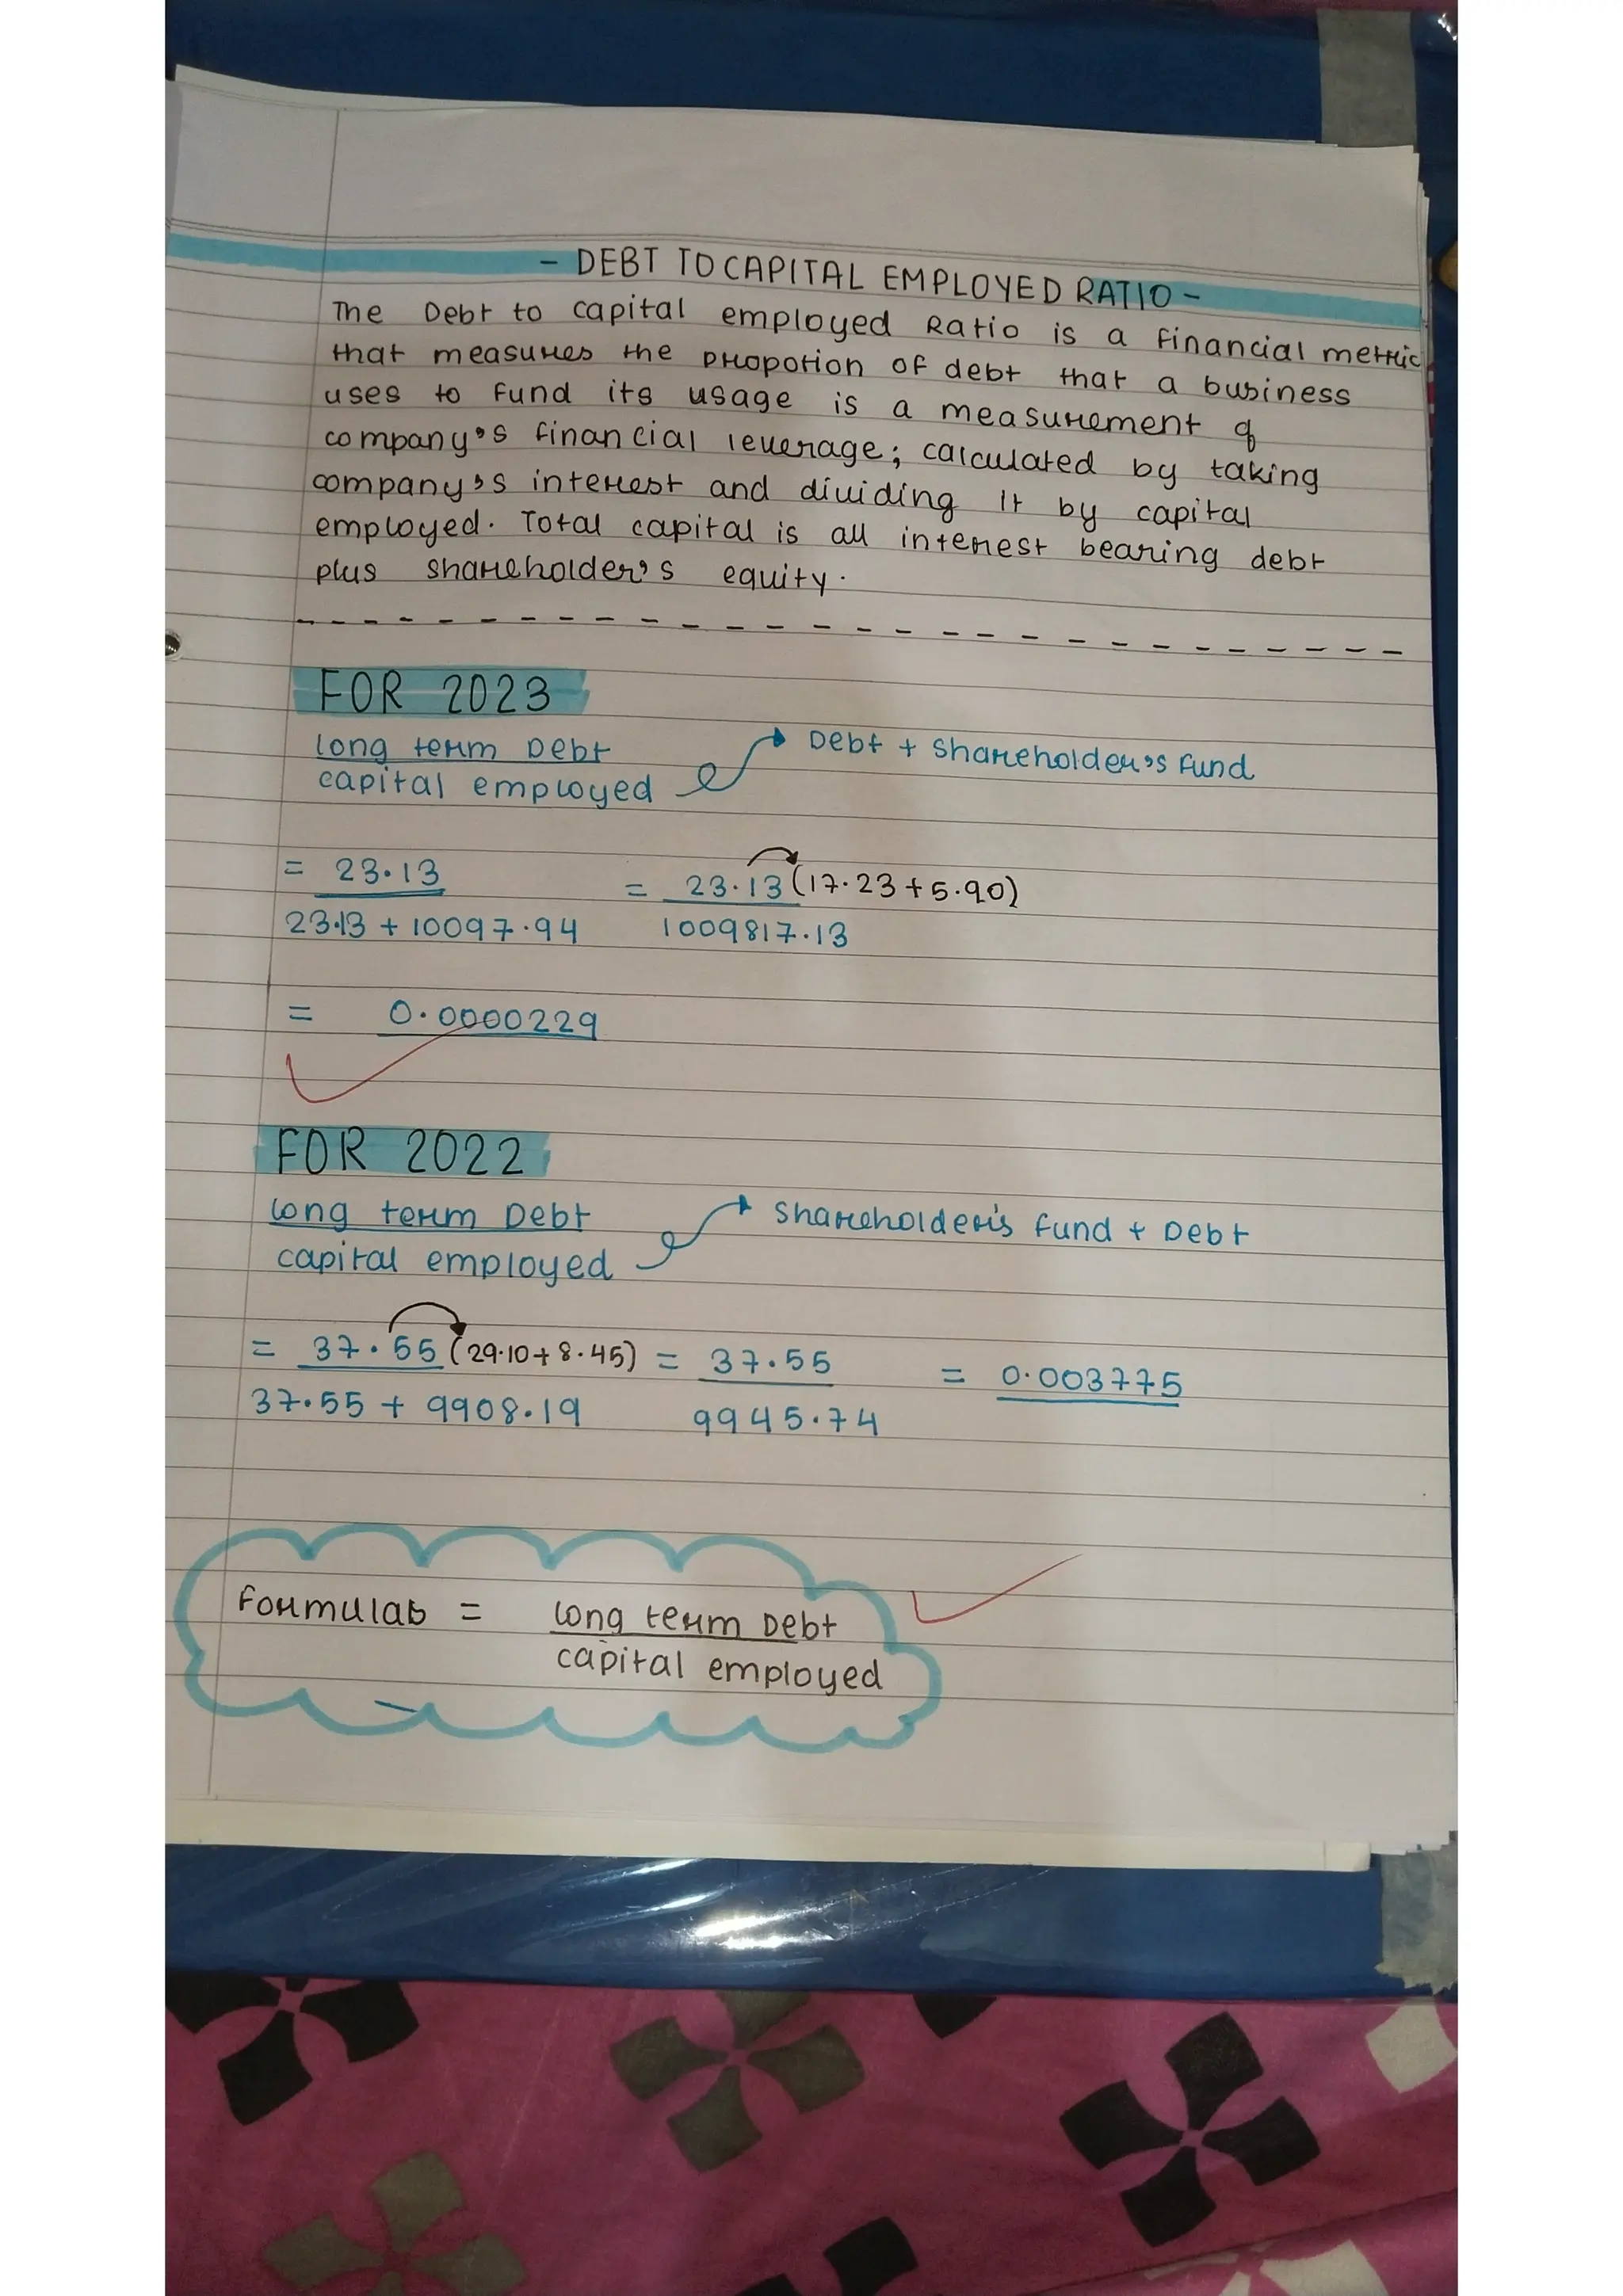 - DEBT TO CAPITAL EMPLOYED RATIO -
The Debt to capital employed Ratio is a financial metric
that measures the propotion of debt that a business
uses to fund its usage is a measurement of
company's financial leverage; calculated by taking
company's interest and dividing it by capital
employed. Total capital is all interest bearing debt
plus shareholder's equity.
FOR 2023
long term Debt
capital employed → Debt + Shareholder's fund
= 23.13 = 23.13 (17.23 + 5.90)
23.13 + 10097.94 1009817.13
= 0.0000229
FOR 2022
long term Debt
capital employed → Shareholder's fund + Debt
= 37.55 (29.10 + 8.45) = 37.55 = 0.003775
37.55 + 9908.19 9945.74
Formulas = long term Debt
capital employed